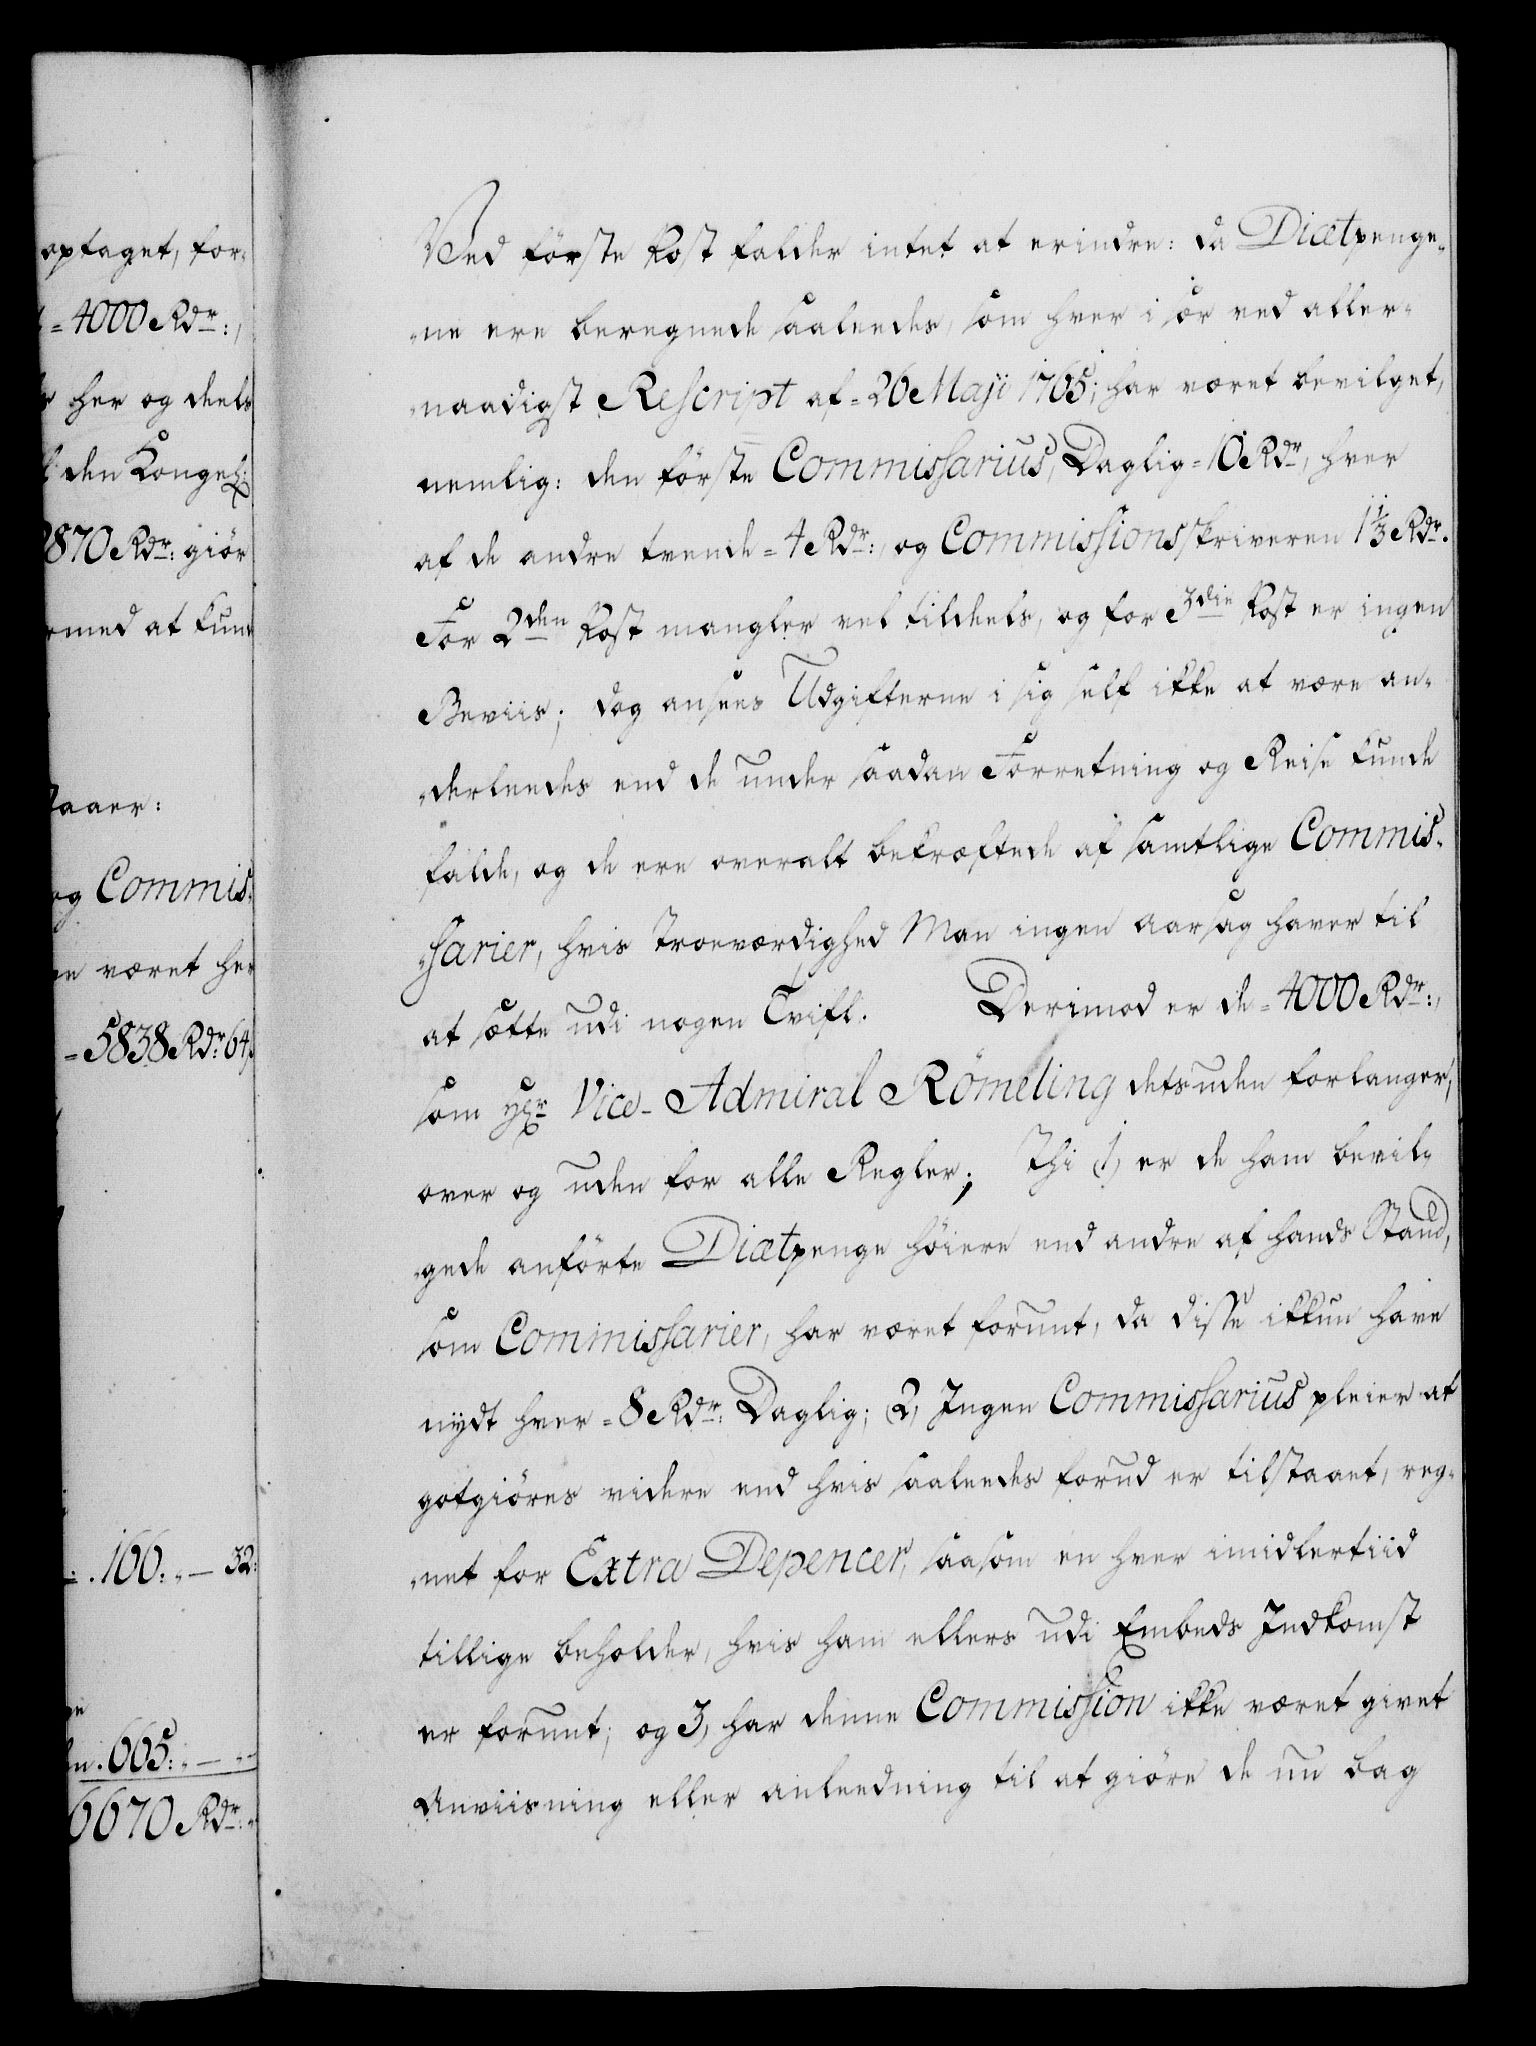 optaget, for-
= 4000 Rdr:,
her og deels
den Kongel:
2870 Rdr: giör
med at kun
aaer:
og Commis-
været her
= 5838 Rdr: 64
. 166: „ — 32:
. 665: „ — „
6670 Rdr: „
Ved förste Post falder intet at erindre: da Diætpenge-
-ne ere beregnede saaledes, som hver i sær ved aller-
-naadigst Rescript af = 26 Maji 1765; har været bevilget,
nemlig: den förste Commissarius, Daglig = 10 Rdr, hver
af de andre tvende = 4 Rdr:, og Commissions skriveren 1 1/3 Rdr.
For 2den Post mangler vel tildeels, og for 3die Post er ingen
Beviis; dog ansees Udgifterne i sig self ikke at være an-
-derleedes end de under saadan Forretning og Reise kunde
falde, og de ere overalt bekræftede af samtlige Commis-
-sarier, hvis Troeværdighed Man ingen aarsag haver til
at sætte udi nogen Tvifl. Derimod er de = 4000 Rdr:,
som Hr Vice-Admiral Römeling desuden forlanger,
over og uden for alle Regler; Thi 1, er de ham bevil-
-gede anförte Diætpenge höiere end andre af hands Stand,
som Commissarier, har været forunt, da disse ikkun have
nydt hver = 8 Rdr: Daglig; 2, Ingen Commissarius pleier at
gotgiöres videre end hvis saaledes forud er tilstaaet, reg-
-net for Extra Depencer, saasom en hver imidlertiid
tillige beholder, hvis ham ellers udi Embeds Indkomst
er forunt; og 3, har denne Commission ikke været givet
Anviisning eller anleedning til at giöre de nu bag